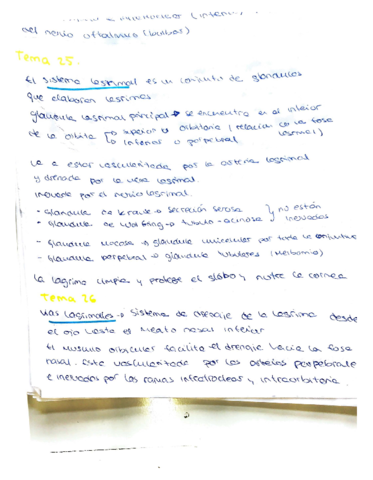 del nervio oftálmico (
Tema 25.
El sistema lagrimal es un conjunto de glandulas
que elaboran lagrimas.
glandula lagrimal principal → se encuentra en el interior
de la orbita → superior u orbitaria (relacion con la fosa
lagrimal)
→ inferior o palpebral
La a estar vascularizada por la arteria lagrimal
y drenada por la vena lagrimal.
inervada por el nervio lagrimal.
- Glandula de krause → secreción serosa } y no están
- Glandula de wolfring → tubulo-acinosa } inervadas
- Glandula mucosa → glandula unicelular por toda la conjuntiva
- Glandula palpebral → glandula tubulares (Meibomio)
La lagrima limpia y protege el globo y nutre la cornea
Tema 26
vias lagrimales → sistema de desagüe de la lagrima desde
el ojo hasta el meato nasal inferior
El musculo orbicular facilita el drenaje hacia la fosa
nasal. Esta vascularizada por las arterias palpebrales
e inervadas por las ramas infratroclear y infraorbitaria.